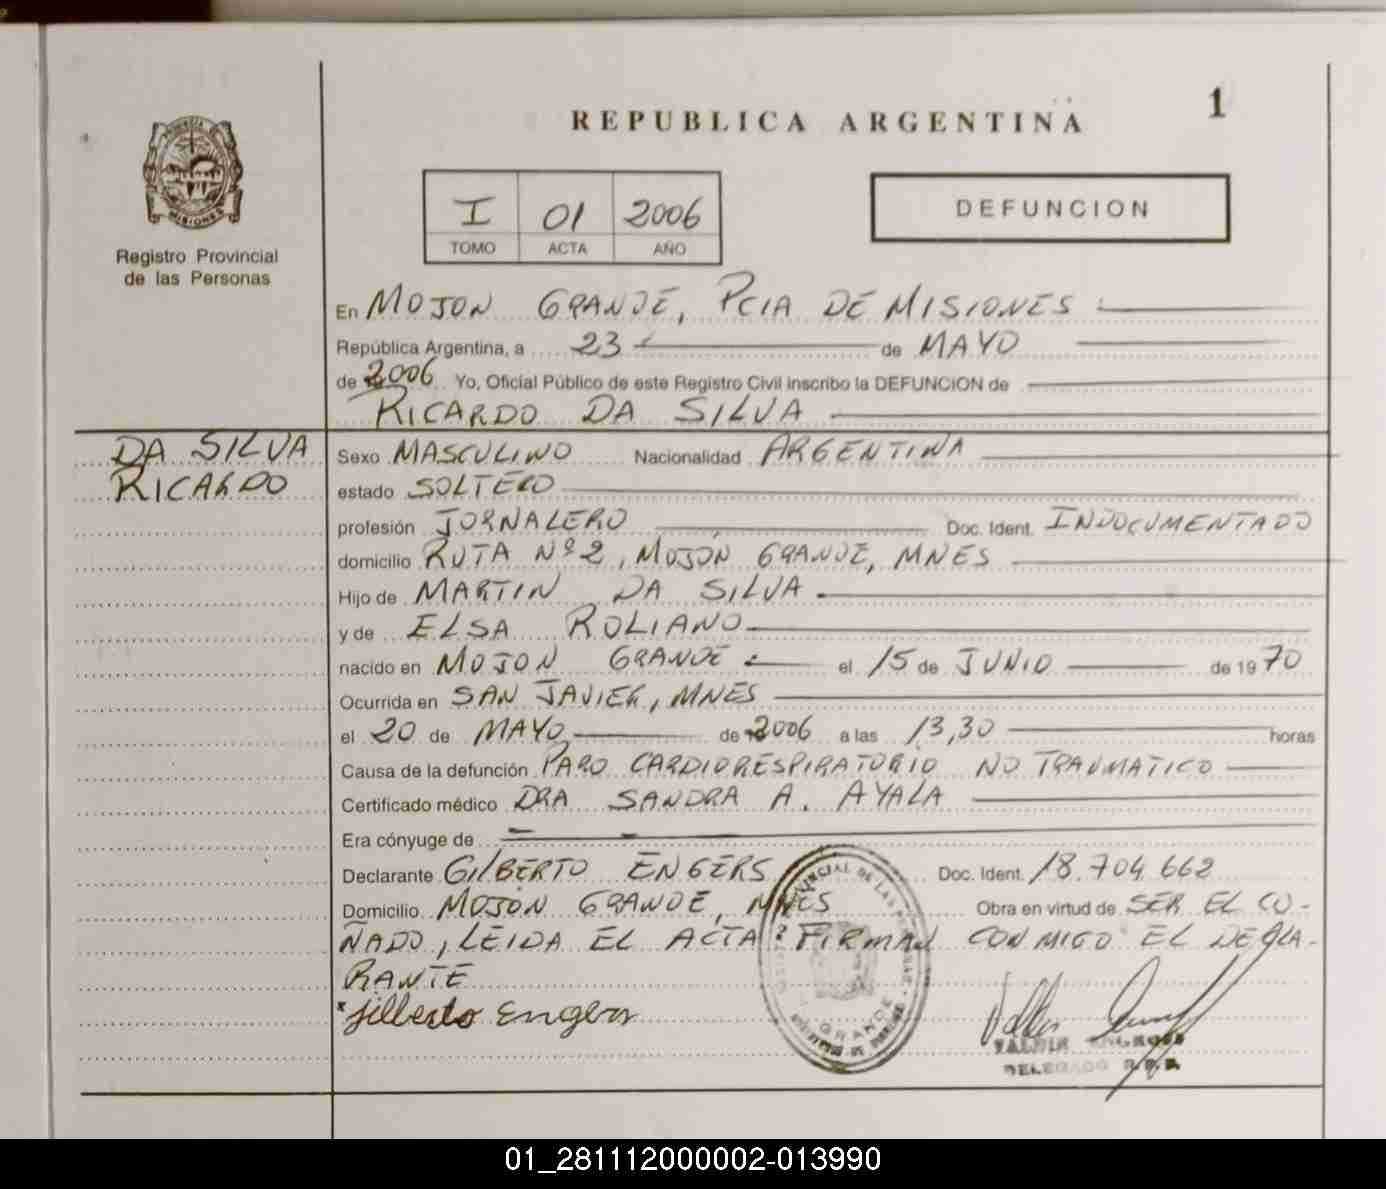 1
REPUBLICA ARGENTINA
PROVINCIA DE
MISIONES
Registro Provincial
de las Personas
I 01 2006
TOMO ACTA AÑO
DEFUNCION
En MOJON GRANDE, PCIA DE MISIONES
República Argentina, a 23 de MAYO
de 2006 Yo, Oficial Público de este Registro Civil inscribo la DEFUNCION de
RICARDO DA SILVA
DA SILVA
RICARDO
Sexo MASCULINO Nacionalidad ARGENTINA
estado SOLTERO
profesión JORNALERO Doc. Ident. INDOCUMENTADO
domicilio RUTA Nº 2, MOJON GRANDE, MNES
Hijo de MARTIN DA SILVA
y de ELSA ROLIANO
nacido en MOJON GRANDE el 15 de JUNIO de 1970
Ocurrida en SAN JAVIER, MNES
el 20 de MAYO de 2006 a las 13,30 horas
Causa de la defunción PARO CARDIORESPIRATORIO NO TRAUMATICO
Certificado médico DRA SANDRA A. AYALA
Era cónyuge de
Declarante GILBERTO ENGERS Doc. Ident. 18.704.662
Domicilio MOJON GRANDE, MNES Obra en virtud de SER EL CU-
ÑADO, LEIDA EL ACTA FIRMAN CONMIGO EL DECLA-
RANTE
Gilberto Engers
DELEGADO
GRANDE
01_281112000002-013990